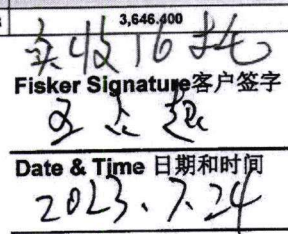 3,646.400
实收16托
Fisker Signature客户签字
Date & Time 日期和时间
2023.7.24